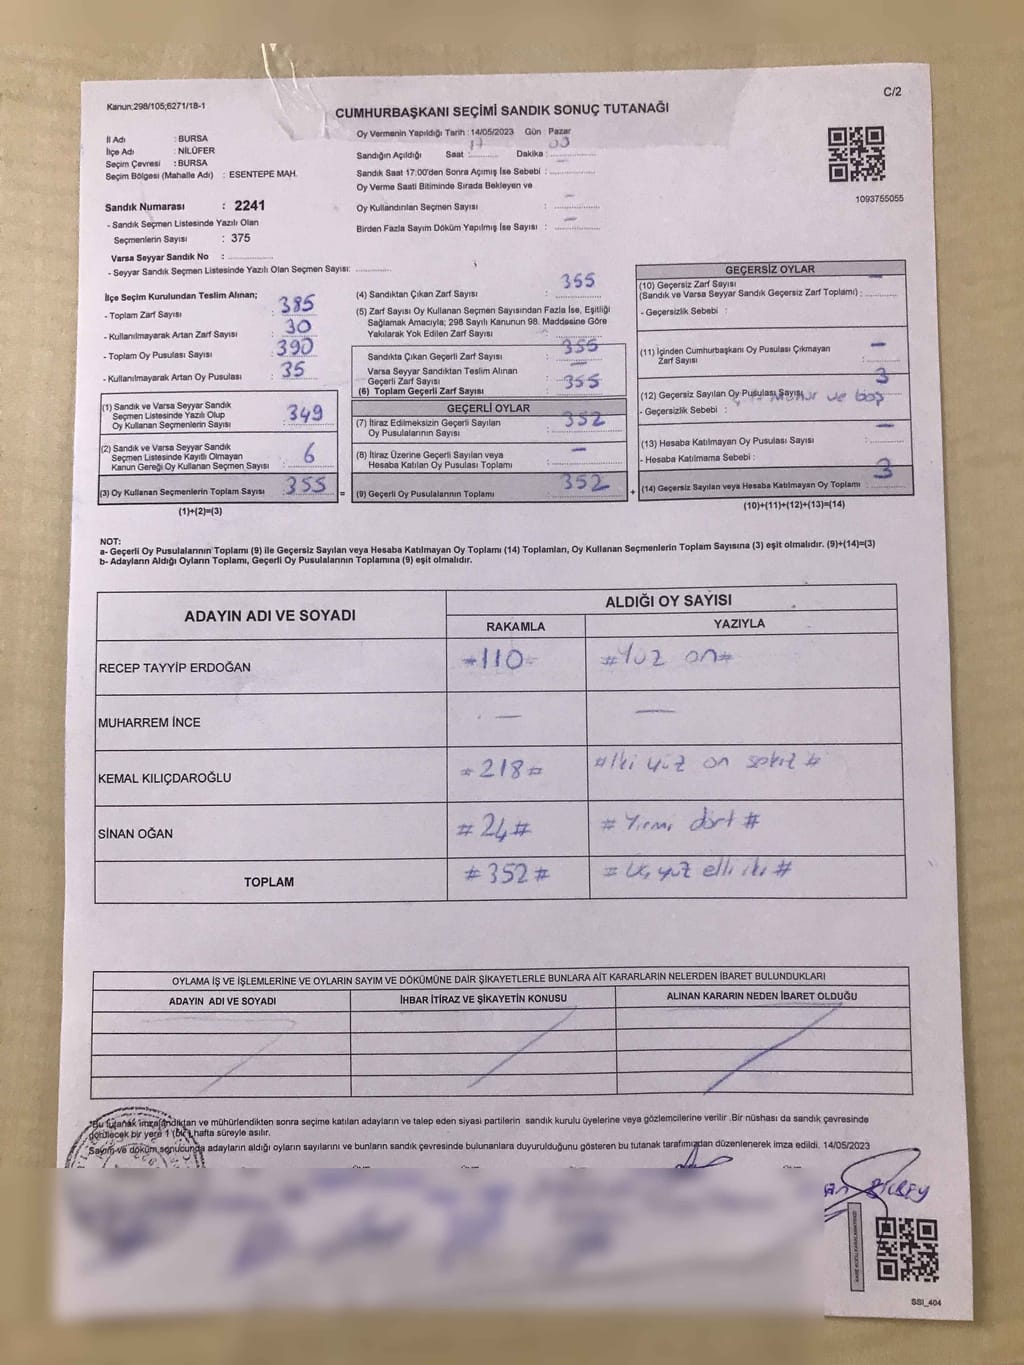 Kanun;298/105;6271/18-1
C/2
CUMHURBAŞKANI SEÇİMİ SANDIK SONUÇ TUTANAĞI
İl Adı : BURSA
İlçe Adı : NİLÜFER
Seçim Çevresi : BURSA
Seçim Bölgesi (Mahalle Adı) : ESENTEPE MAH.
Sandık Numarası : 2241
- Sandık Seçmen Listesinde Yazılı Olan
Seçmenlerin Sayısı : 375
Varsa Seyyar Sandık No :
- Seyyar Sandık Seçmen Listesinde Yazılı Olan Seçmen Sayısı:
Oy Vermenin Yapıldığı Tarih : 14/05/2023 Gün : Pazar
Sandığın Açıldığı Saat : 17 Dakika : 00
Sandık Saat 17:00'den Sonra Açımış İse Sebebi : —
Oy Verme Saati Bitiminde Sırada Bekleyen ve
Oy Kullandırılan Seçmen Sayısı : —
Birden Fazla Sayım Döküm Yapılmış İse Sayısı : —
1093755055
İlçe Seçim Kurulundan Teslim Alınan;
- Toplam Zarf Sayısı : 385
- Kullanılmayarak Artan Zarf Sayısı : 30
- Toplam Oy Pusulası Sayısı : 390
- Kullanılmayarak Artan Oy Pusulası : 35
(1) Sandık ve Varsa Seyyar Sandık
Seçmen Listesinde Yazılı Olup
Oy Kullanan Seçmenlerin Sayısı : 349
(2) Sandık ve Varsa Seyyar Sandık
Seçmen Listesinde Kayıtlı Olmayan
Kanun Gereği Oy Kullanan Seçmen Sayısı : 6
(3) Oy Kullanan Seçmenlerin Toplam Sayısı : 355 =
(1)+(2)=(3)
(4) Sandıktan Çıkan Zarf Sayısı : 355
(5) Zarf Sayısı Oy Kullanan Seçmen Sayısından Fazla İse, Eşitliği
Sağlamak Amacıyla; 298 Sayılı Kanunun 98. Maddesine Göre
Yakılarak Yok Edilen Zarf Sayısı :
Sandıkta Çıkan Geçerli Zarf Sayısı : 355
Varsa Seyyar Sandıktan Teslim Alınan
Geçerli Zarf Sayısı : —
(6) Toplam Geçerli Zarf Sayısı : 355
GEÇERLİ OYLAR
(7) İtiraz Edilmeksizin Geçerli Sayılan
Oy Pusulalarının Sayısı : 352
(8) İtiraz Üzerine Geçerli Sayılan veya
Hesaba Katılan Oy Pusulası Toplamı : —
(9) Geçerli Oy Pusulalarının Toplamı : 352 +
GEÇERSİZ OYLAR
(10) Geçersiz Zarf Sayısı —
(Sandık ve Varsa Seyyar Sandık Geçersiz Zarf Toplamı) :
- Geçersizlik Sebebi :
(11) İçinden Cumhurbaşkanı Oy Pusulası Çıkmayan —
Zarf Sayısı :
(12) Geçersiz Sayılan Oy Pusulası Sayısı 3
- Geçersizlik Sebebi : ve boş
(13) Hesaba Katılmayan Oy Pusulası Sayısı : —
- Hesaba Katılmama Sebebi :
(14) Geçersiz Sayılan veya Hesaba Katılmayan Oy Toplamı : 3
(10)+(11)+(12)+(13)=(14)
NOT:
a- Geçerli Oy Pusulalarının Toplamı (9) ile Geçersiz Sayılan veya Hesaba Katılmayan Oy Toplamı (14) Toplamları, Oy Kullanan Seçmenlerin Toplam Sayısına (3) eşit olmalıdır. (9)+(14)=(3)
b- Adayların Aldığı Oyların Toplamı, Geçerli Oy Pusulalarının Toplamına (9) eşit olmalıdır.
ADAYIN ADI VE SOYADI ALDIĞI OY SAYISI
RAKAMLA YAZIYLA
RECEP TAYYİP ERDOĞAN #110# #Yüz on#
MUHARREM İNCE — —
KEMAL KILIÇDAROĞLU #218# #İki yüz on sekiz#
SİNAN OĞAN #24# #Yirmi dört#
TOPLAM #352# #Üç yüz elli iki#
OYLAMA İŞ VE İŞLEMLERİNE VE OYLARIN SAYIM VE DÖKÜMÜNE DAİR ŞİKAYETLERLE BUNLARA AİT KARARLARIN NELERDEN İBARET BULUNDUKLARI
ADAYIN ADI VE SOYADI İHBAR İTİRAZ VE ŞİKAYETİN KONUSU ALINAN KARARIN NEDEN İBARET OLDUĞU
*Bu tutanak imzalandıktan ve mühürlendikten sonra seçime katılan adayların ve talep eden siyasi partilerin sandık kurulu üyelerine veya gözlemcilerine verilir .Bir nüshası da sandık çevresinde
görülecek bir yere 1 (bir) hafta süreyle asılır.
Sayım ve döküm sonucunda adayların aldığı oyların sayılarını ve bunların sandık çevresinde bulunanlara duyurulduğunu gösteren bu tutanak tarafımızdan düzenlenerek imza edildi. 14/05/2023
SSI_404